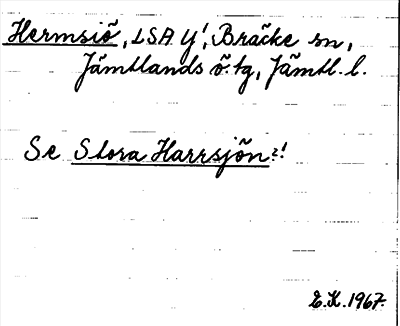 Hermsiö, LSA Y!, Bräcke sn,
Jämtlands ö. tg, Jämtl. l.
Se Stora Harrsjön?!
E.K. 1967.